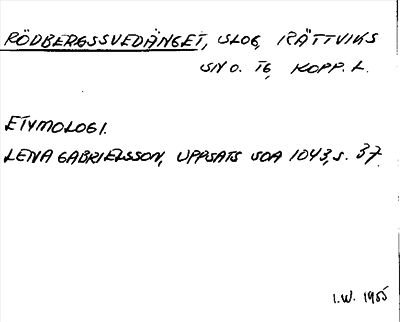 RÖDBERGSSVEDÄNGET, SLOG, RÄTTVIKS
SN O. TG, KOPP. L.
ETYMOLOGI.
LENA GABRIELSSON, UPPSATS SOA 1043, S. 37.
I.W. 1985